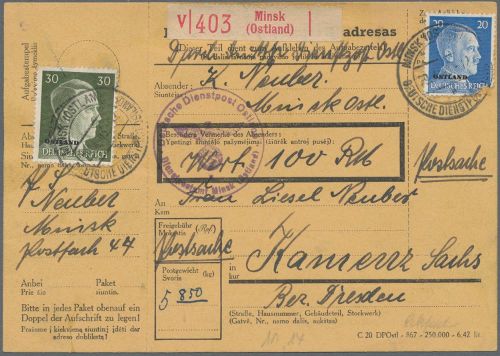 V 403 Minsk (Ostland)
adresas
Dieser Teil dient zum Aufkleben der Aufgabezettel
K. Neuber
Absender:
Siuntėjas
Minsk Ostl.
30 30
OSTLAND
DEUTSCHES REICH
20 20
OSTLAND
DEUTSCHES REICH
MINSK
DEUTSCHE DIENSTPOST
Deutsche Dienstpost Ostland
Minsk (Ostland)
Besondere Vermerke des Absenders:
Ypatingi siuntėjo pažymėjimai, (žiūrėk antroj pusėj)
Wert 100 RM
Postsache
An
Kam
Frau Liesel Neuber
K. Neuber
Minsk
Postfach 47
Freigebühr
Mokestis
(Rpf)
Postsache
Postgewicht
Svoris
(kg)
5 850
in
kur
Kamenz Sachs
Bez. Dresden
Anbei
Prie šio
Paket
siuntinis
Bitte in jedes Paket obenauf ein
Doppel der Aufschrift zu legen!
Prašome į kiekvieną siuntinį įdėti dar
adreso dublikatą!
(Straße, Hausnummer, Gebäudeteil, Stockwerk)
(Gatvė, Nr., namo dalis, aukštas)
C 20 DPOstl - 867 - 250.000 - 6.42 kr.